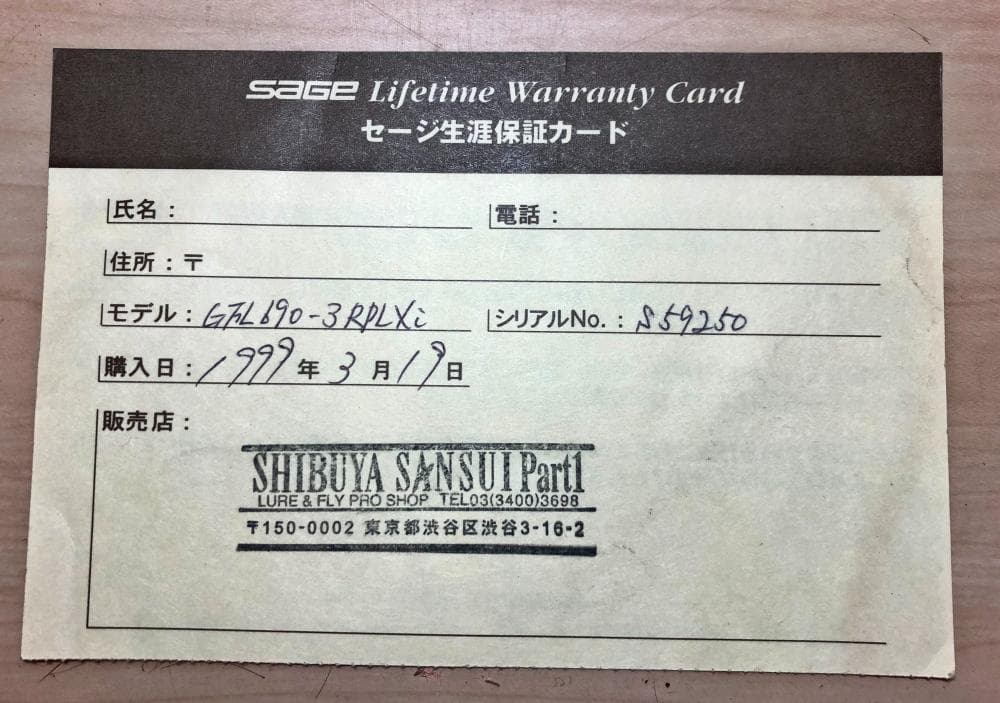 SAGE Lifetime Warranty Card
セージ生涯保証カード
氏名： 電話：
住所：〒
モデル：GFL690-3RPLXi シリアルNo.：S59250
購入日：1999年3月19日
販売店：
SHIBUYA SANSUI Part1
LURE & FLY PRO SHOP TEL03(3400)3698
〒150-0002 東京都渋谷区渋谷3-16-2